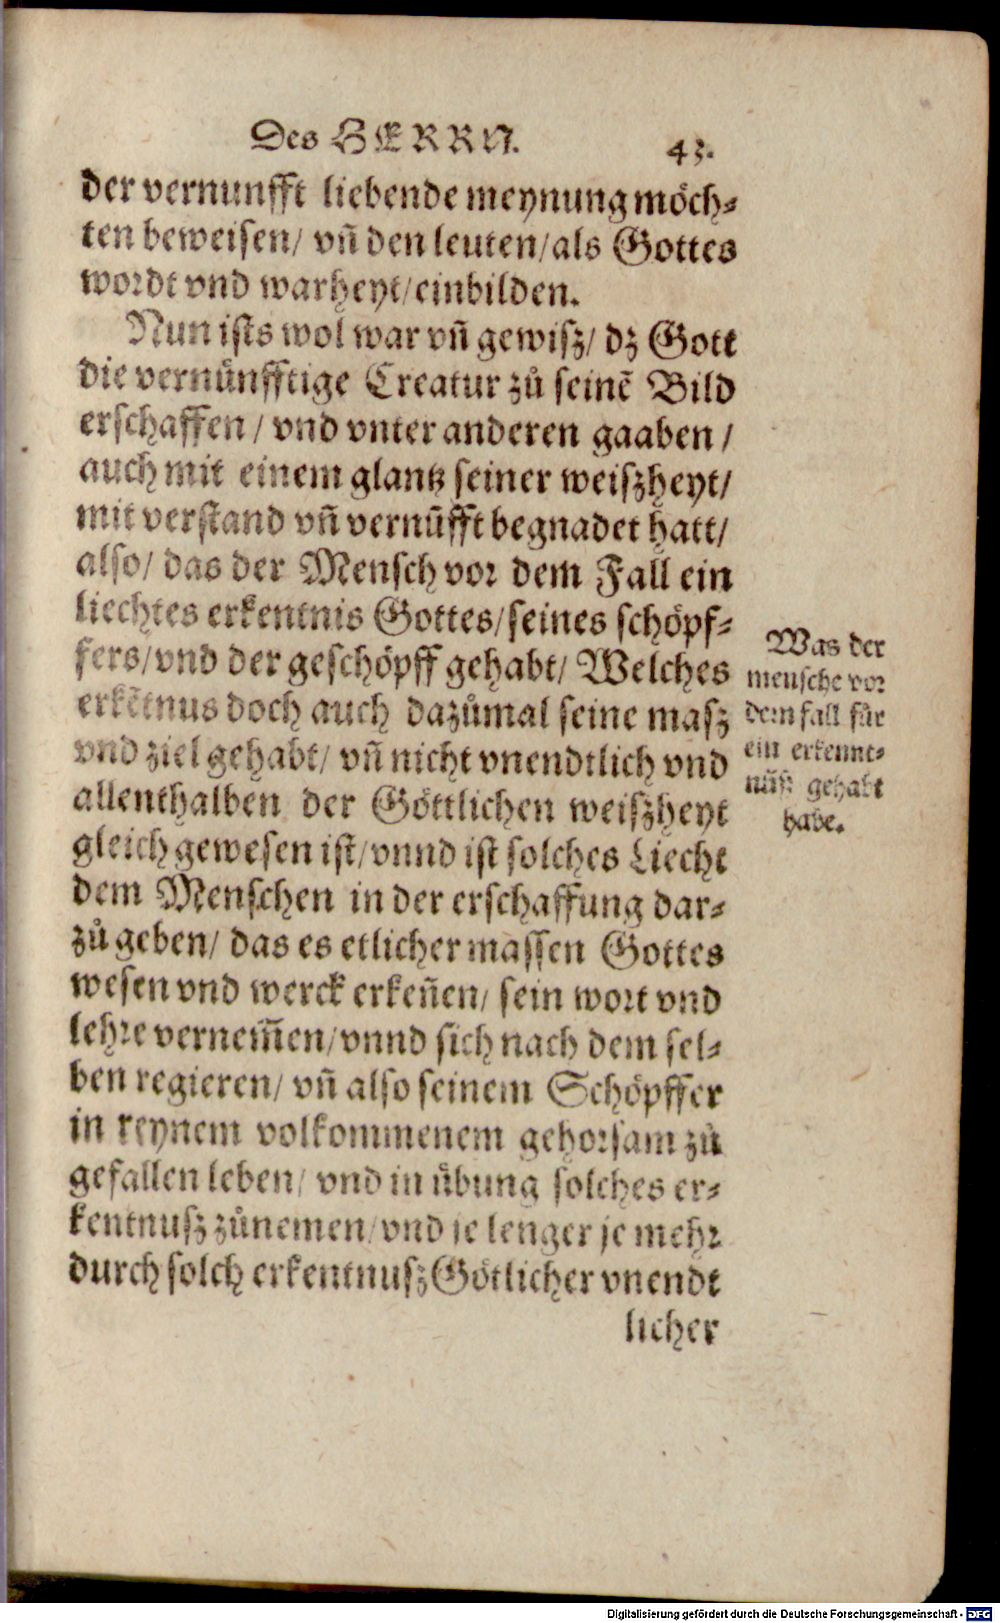 Des HERRN. 43.
der vernunfft liebende meynung möch⸗
ten beweisen/ vn̄ den leuten/als Gottes
wordt vnd warheyt/einbilden.
Nun ists wol war vn̄ gewisz/ dz Gott
die vernünfftige Creatur zů seinē Bild
erschaffen / vnd vnter anderen gaaben /
auch mit einem glantz seiner weiszheyt/
mit verstand vn̄ vernūfft begnadet hatt/
also/ das der Mensch vor dem Fall ein
liechtes erkentnis Gottes/seines schöpf⸗
fers/vnd der geschöpff gehabt/ Welches
erkētnus doch auch dazůmal seine masz
vnd ziel gehabt/ vn̄ nicht vnendtlich vnd
allenthalben der Göttlichen weiszheyt
gleich gewesen ist/vnnd ist solches Liecht
dem Menschen in der erschaffung dar⸗
zů geben/ das es etlicher massen Gottes
wesen vnd werck erken̄en/ sein wort vnd
lehre vernem̄en/vnnd sich nach dem sel⸗
ben regieren/ vn̄ also seinem Schöpffer
in reynem volkommenem gehorsam zů
gefallen leben/ vnd in übung solches er⸗
kentnusz zůnemen/vnd je lenger je mehr
durch solch erkentnusz Götlicher vnendt
licher
Was der
mensche vor
dem fall für
ein erkennt⸗
nüsz gehabt
habe.
Digitalisierung gefördert durch die Deutsche Forschungsgemeinschaft - DFG